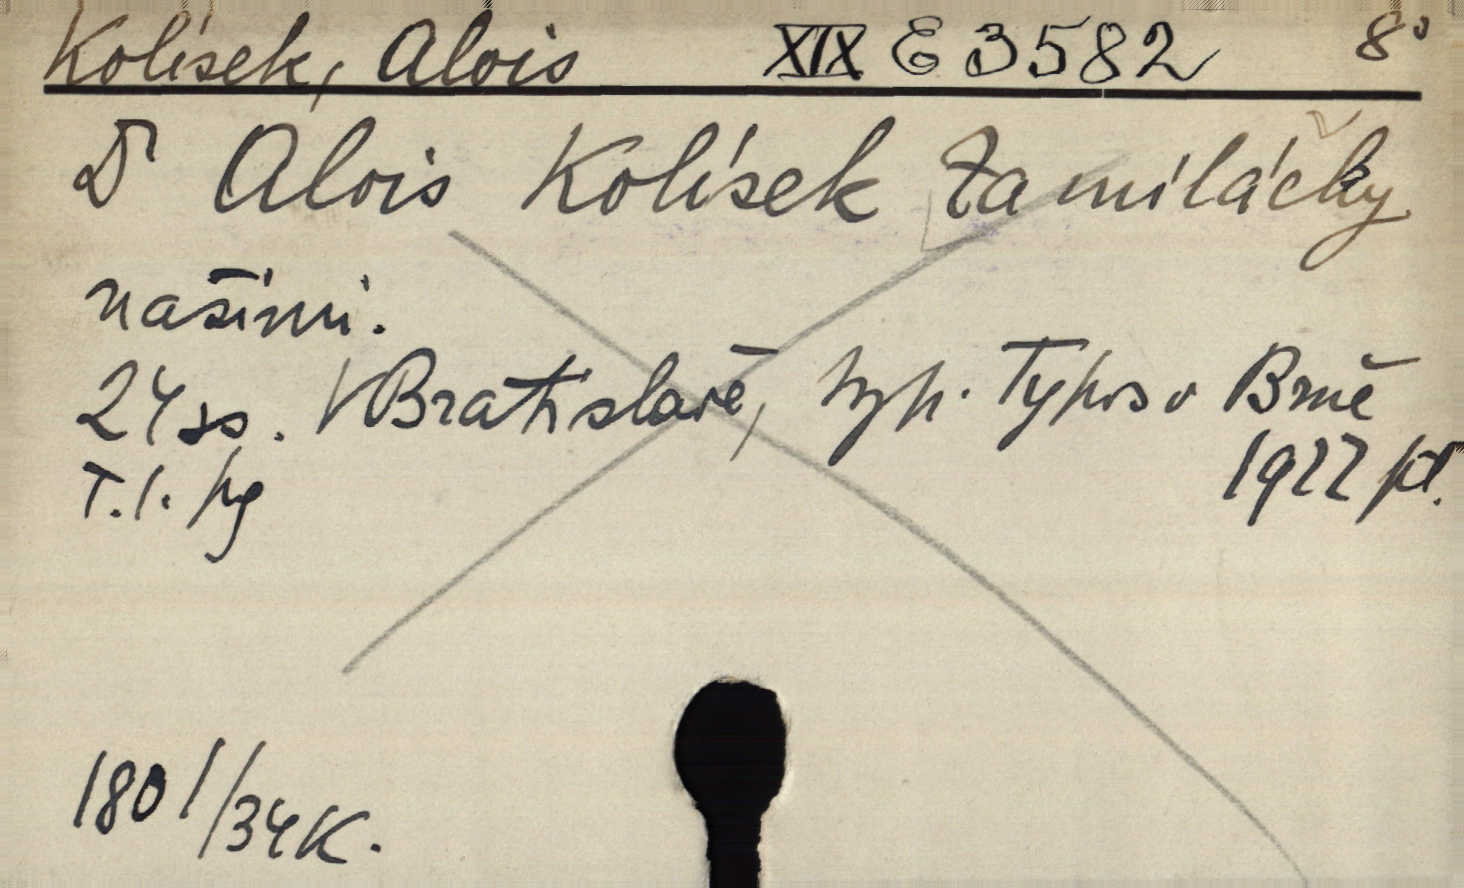 Kolísek, Alois XIX E 3582 8°
Dr Alois Kolísek Za miláčky
našimi.
24 ss. V Bratislavě, typ. Typos v Brně
1922 pd.
T. l. pg
1801/34 K.